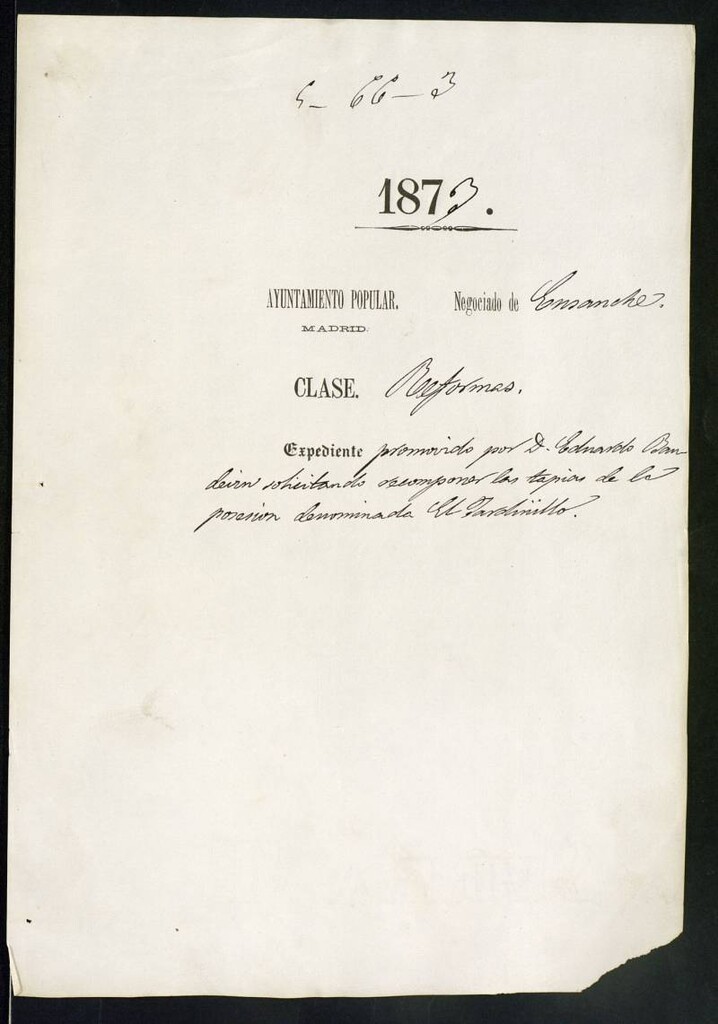 5-66-3
1873.
AYUNTAMIENTO POPULAR. Negociado de Ensanche.
MADRID.
CLASE. Reformas.
Expediente promovido por D. Eduardo Ban
deira solicitando recomponer las tapias de la
posesion denominada El Jardinillo.